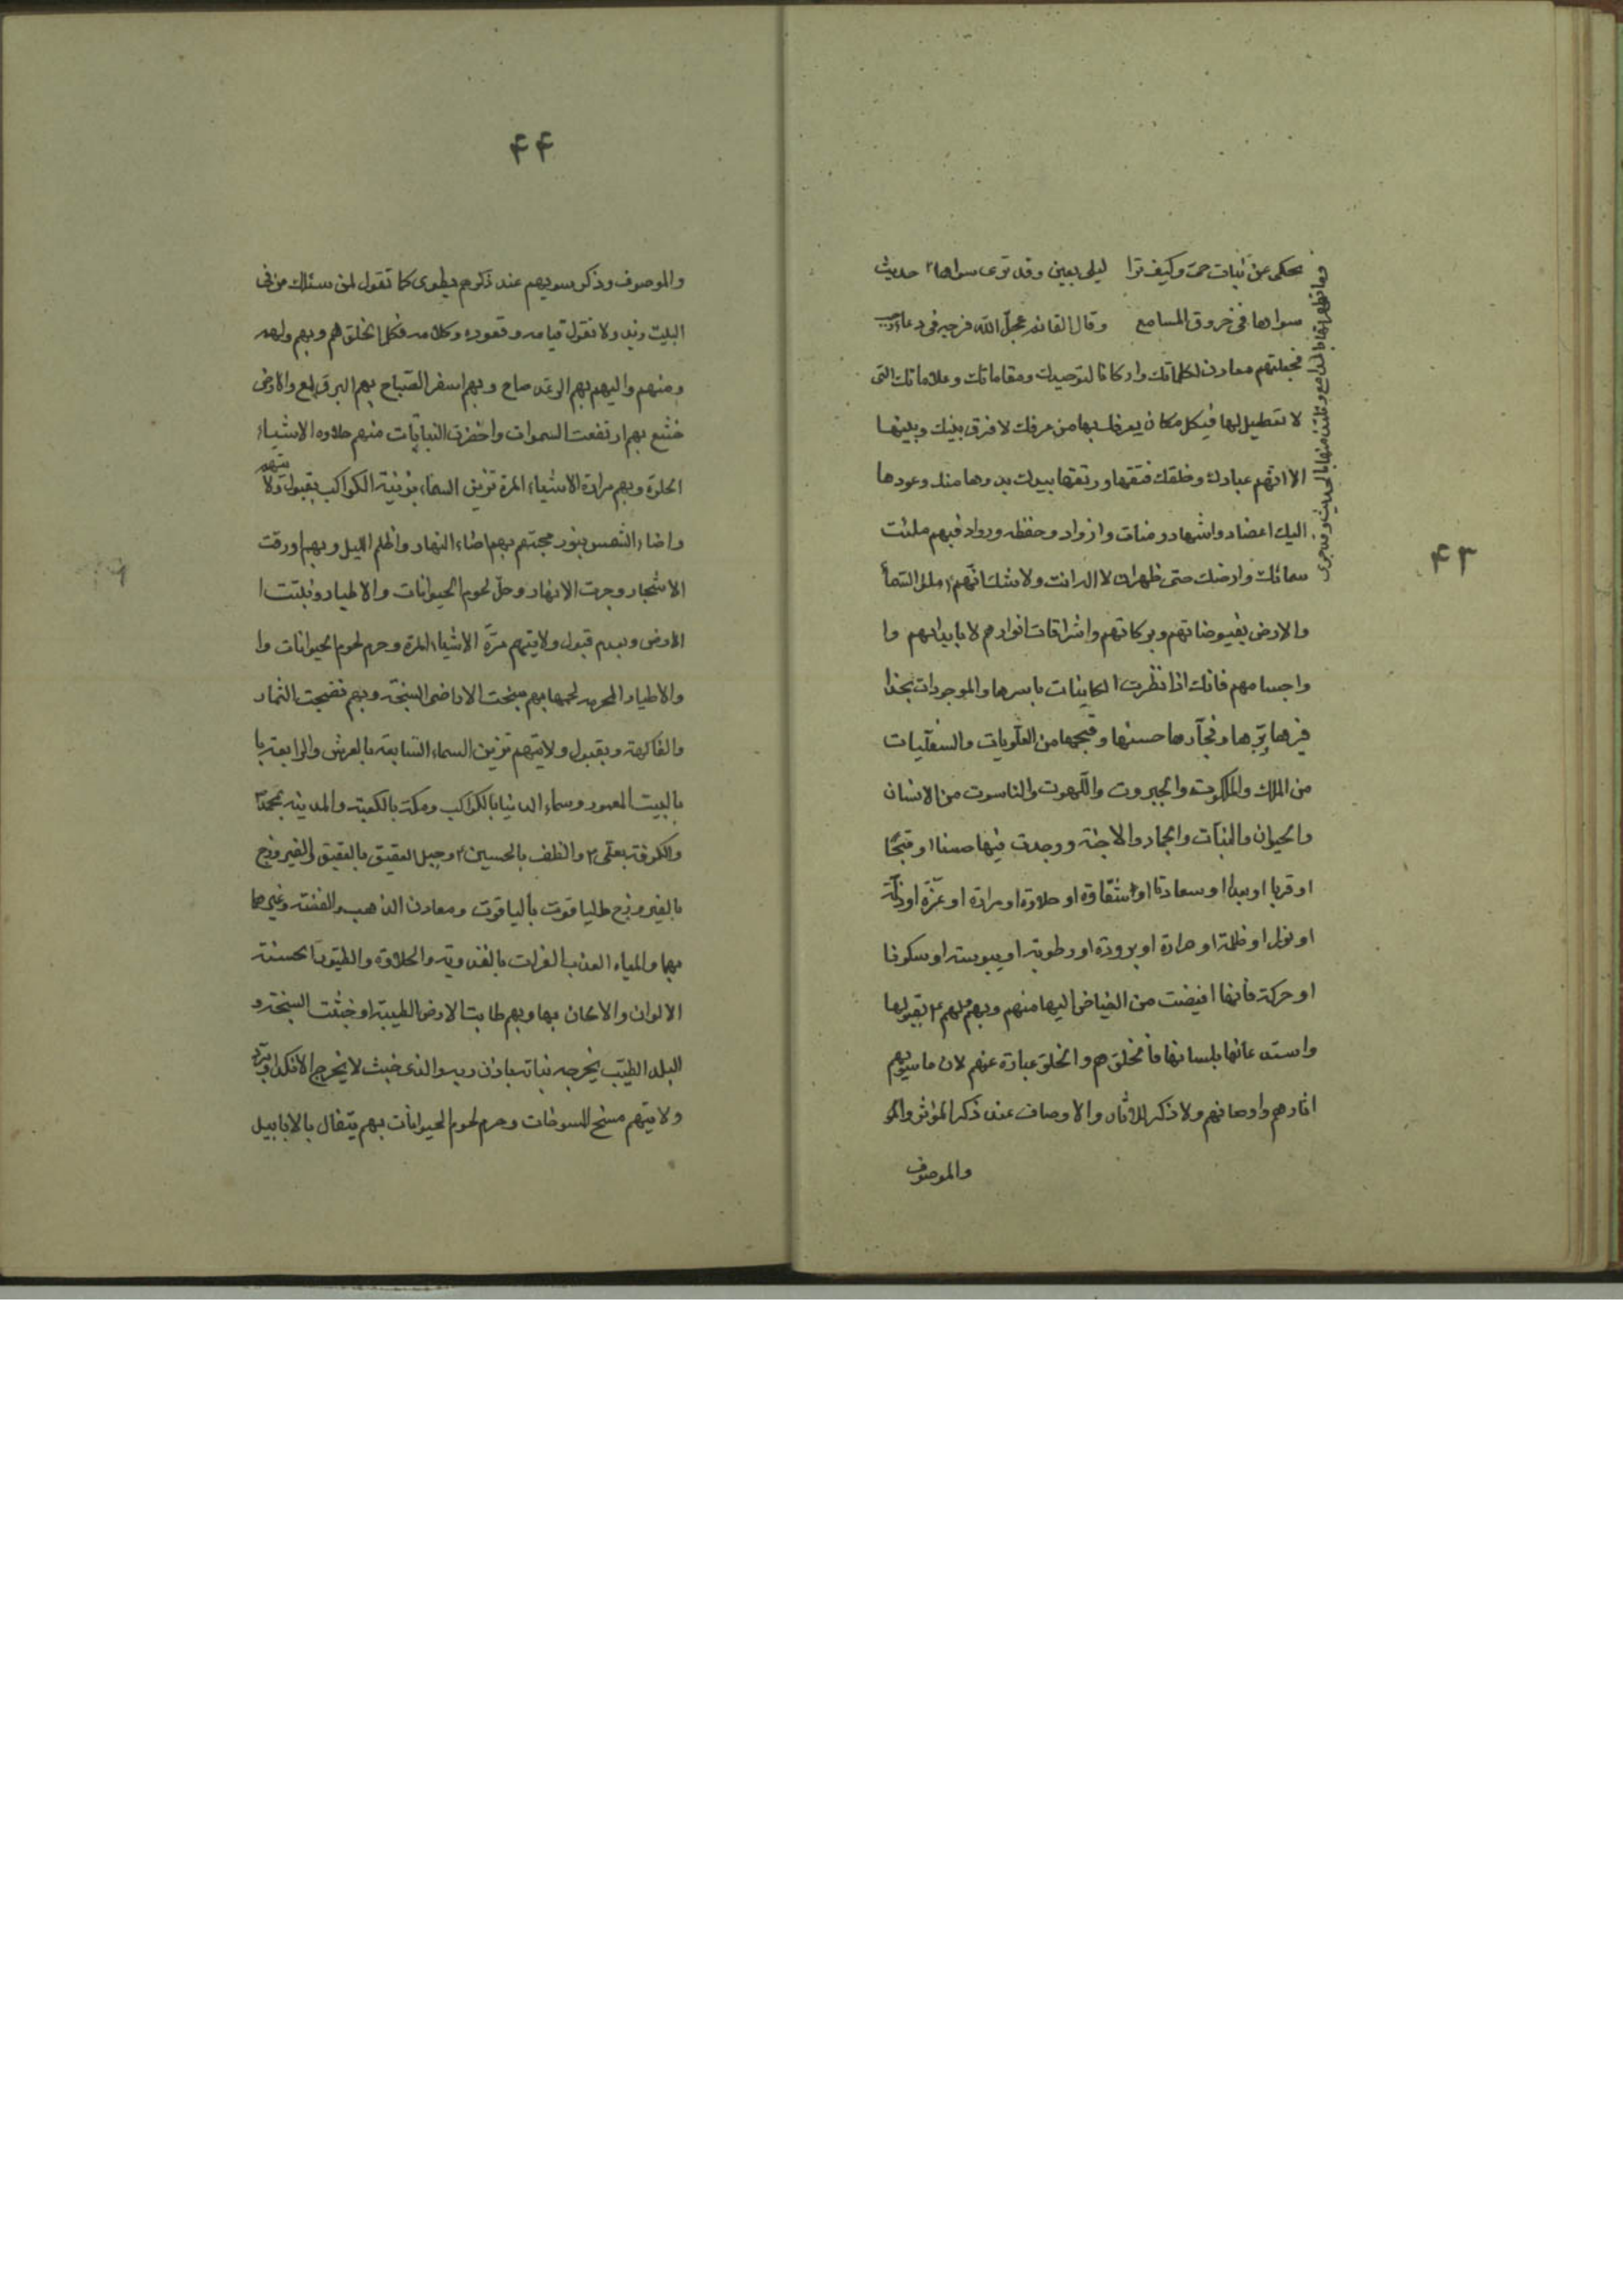 ۴۳
يحكى عن بنيات وكيف ترا ليلى بعين وقد ترى سواها حديث
سواها فى خروق المسامع وقال القائم عجل الله فرجه فى دعاء رجب
فجعلتهم معادن لكلماتك واركانا لتوحيدك ومقاماتك وعلاماتك التى
لا تعطيل لها فيكل مكان يعرفك بها من عرفك لا فرق بينك وبينها
الا انهم عبادك وخلقك فتقها ورتقها بيدك بدوها منك وعودها
اليك اعضاد واشهاد ومنات وازواد وحفظه ورواد فبهم ملئت
سمائك وارضك حتى ظهر ان لا اله الا انت ولا شك انهم ملئ السمآ
والارض بفيوضاتهم وبركاتهم واشراقات انوارهم لا بابدانهم وا
واجسامهم فانك اذا نظرت الكاينات باسرها والموجودات بحذا
فيرها برّها وفجّارها حسنها وقبحها من العلّويات والسفليات
من الملك والملكوت والجبروت واللهوت والناسوت من الانسان
والحيوان والنبات والجماد والاجنّة ووجدت فيها حسنا او قبحًا
او قربا او بعدا او سعادتا او شقاوة او حلاوة او مرارة او عزّة او ذلّة
او نورا او ظلمة او حرارة او برودة او رطوبة او يبوسته او سكونا
او حركة فانها افيضت من الفياض اليها منهم وبهم ولهم بقبولها
واستدعائها بلسانها فالخلق هم والخلق عبارة عنهم لان ما سويهم
اثارهم واوصافهم ولا ذكر للاثار والاوصاف عند ذكر المؤثر والمو
والموصوف
۴۴
والموصوف وذكر سويهم عند ذكرهم يطوى كما تقول لمن سئلك من فى
البيت زيد ولا تقول قيامه وقعوده وكلامه فكل الخلق هم وبهم ولهم
ومنهم واليهم بهم الرعد صاح وبهم اسفر الصّباح بهم البرق لمع والارض
خشع بهم ارتفعت السموات واخضرت النباتات منهم حلاوه الاشياء
الحلوة وبهم مرارة الاشياء المرة تزين السماء بزينة الكواكب بقبول ولايتهم
واضاء الشمس بنور محبتهم بهم اضاء النهار واظلم الليل وبهم اورقت
الاشجار وجرت الانهار وحلّ لحوم الحيوانات والاطيار ونبتت ا
الارض وبعدم قبول ولايتهم مرّة الاشياء المرة وحرم لحوم الحيوانات وا
والاطيار المحرمه لحمها بهم سبخت الاراضى السبخة وبهم نضجت الثمار
والفاكهة وبقبول ولايتهم تزين السماء السّابعة بالعرش والرابعة با
بالبيت المعمور وسماء الدنيا بالكواكب ومكة بالكعبة والمدينه بمحمد
والكوفة بعلى والطف بالحسين وجبل العقيق بالعقيق والفيروزج
بالفيروزج والياقوت بالياقوت ومعادن الذهب والفضة وغيرهما
بهما والمياه العذب الفرات بالعذوبة والحلاوة والطيور الحسنة
الالوان والالحان بها وبهم طابت الارض الطيبة او خبثت السبخة و
البلد الطيّب يخرج نباته باذن ربه والذى خبث لا يخرج الا نكدا
ولايتهم مسخ المسوخات وحرم لحوم الحيوانات بهم يتفال بالابابيل